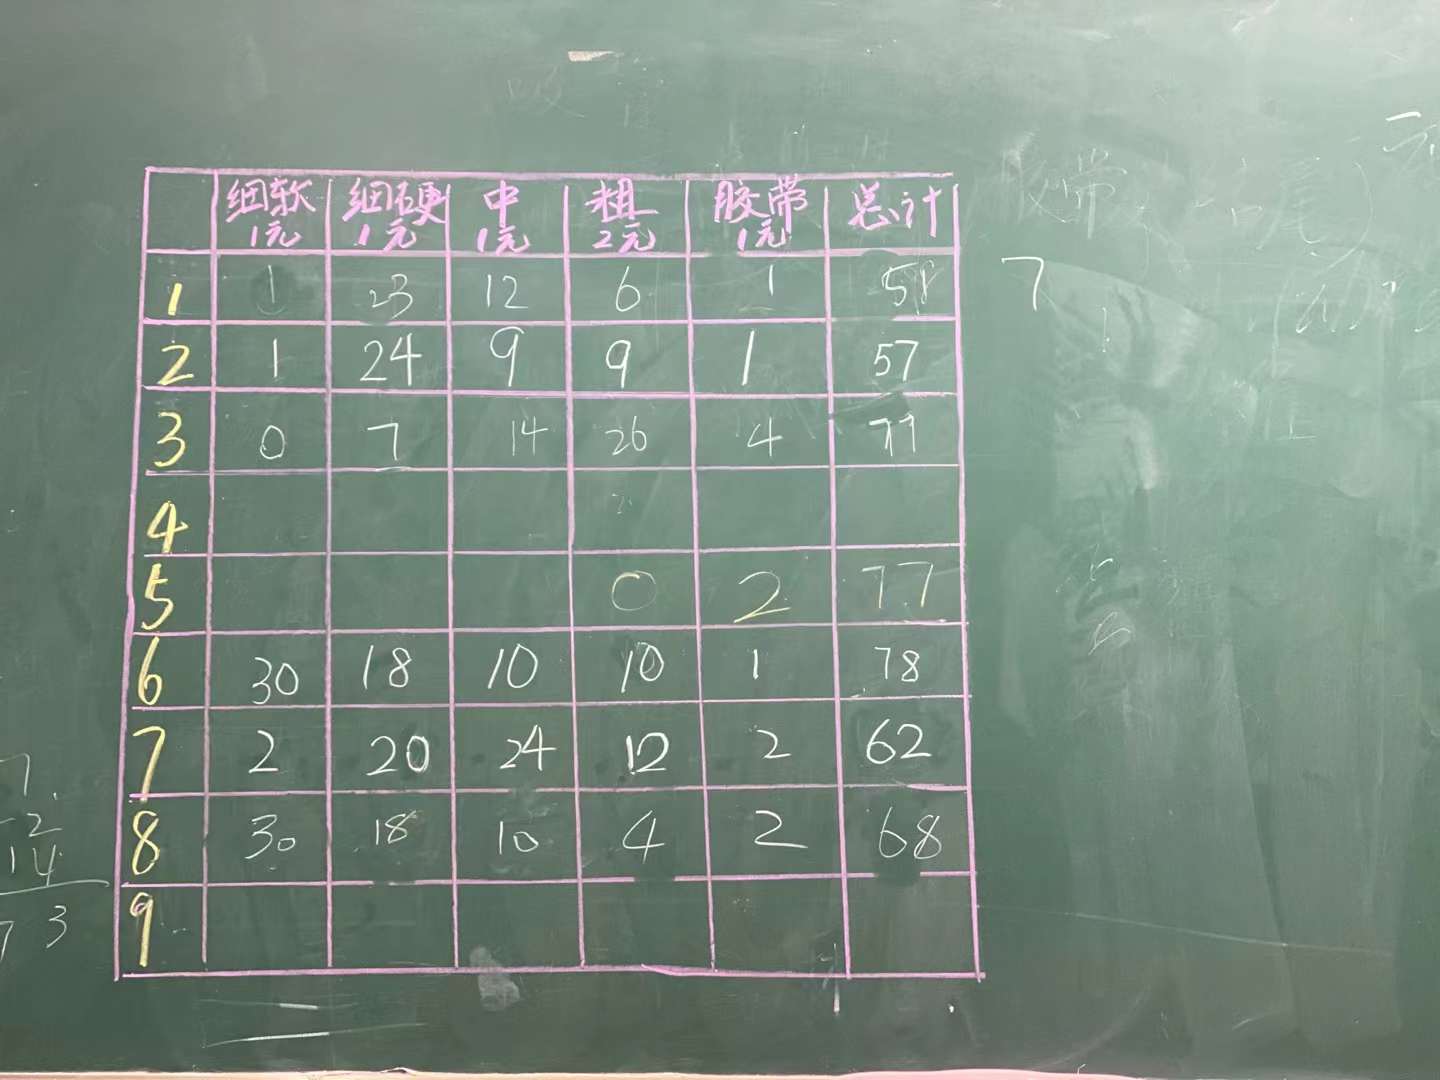 细软 细硬 中 粗 胶带 总计
1元 1元 1元 2元 1元
1 1 23 12 6 1 58
2 1 24 9 9 1 57
3 0 7 14 26 4 77
4
5 0 2 77
6 30 18 10 10 1 78
7 2 20 24 12 2 62
8 30 18 10 4 2 68
9
7
胶带
7
2
14
73